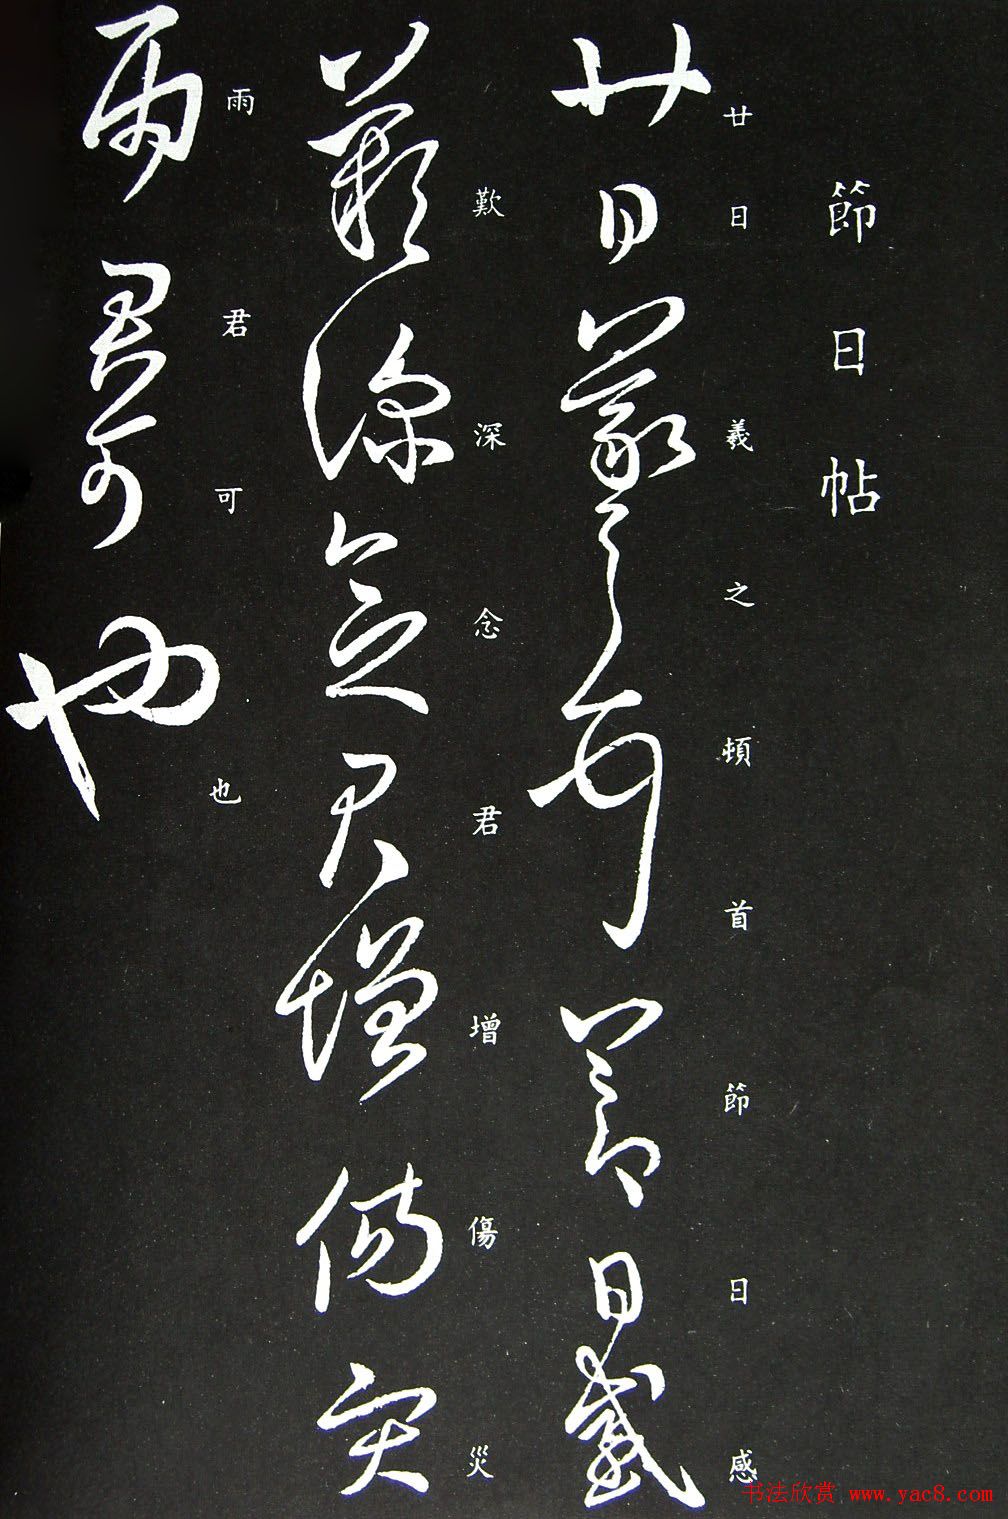 節日帖
廿日羲之頓首節日感
歎深念君增傷災
雨君可也
书法欣赏 www.yac8.com